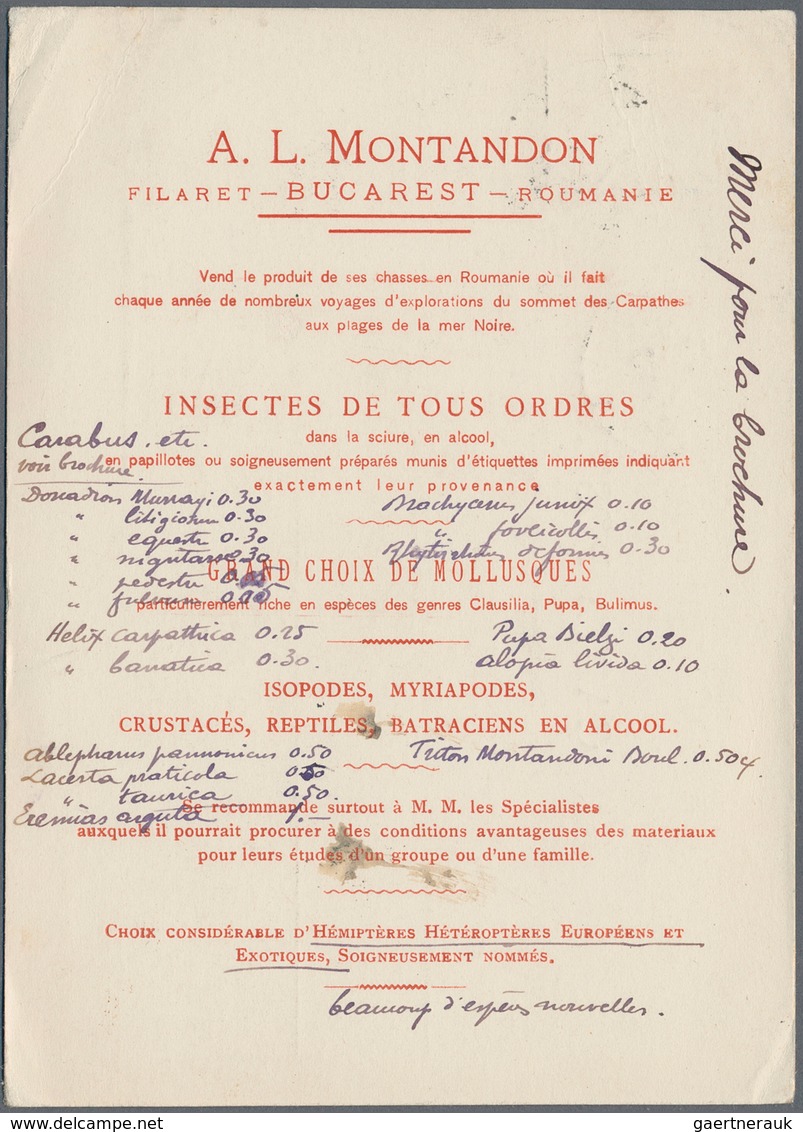 A. L. MONTANDON
FILARET — BUCAREST — ROUMANIE
Vend le produit de ses chasses en Roumanie où il fait
chaque année de nombreux voyages d'explorations du sommet des Carpathes
aux plages de la mer Noire.
Merci pour la brochure.
INSECTES DE TOUS ORDRES
Carabus. etc.
dans la sciure, en alcool,
voir brochure.
en papillotes ou soigneusement préparés munis d'étiquettes imprimées indiquant
exactement leur provenance
Murrayi 0.30
0.10
" litigiosum 0.30
" foveicollis 0.10
" equestre 0.30
0.30
" 0.30
GRAND CHOIX DE MOLLUSQUES
" pedestre
" fulvum
particulièrement riche en espèces des genres Clausilia, Pupa, Bulimus.
Helix carpathica 0.25
Pupa Bielzi 0.20
" banatica 0.30.
alopia livida 0.10
ISOPODES, MYRIAPODES,
CRUSTACÉS, REPTILES, BATRACIENS EN ALCOOL.
Ablepharus pannonicus 0.50
Triton Montandoni Boul. 0.50
Lacerta praticola 0.50
" taurica 0.50.
Eremias arguta 1.—
Se recommande surtout à M. M. les Spécialistes
auxquels il pourrait procurer à des conditions avantageuses des materiaux
pour leurs études d'un groupe ou d'une famille.
CHOIX CONSIDÉRABLE D'HÉMIPTÈRES HÉTÉROPTÈRES EUROPÉENS ET
EXOTIQUES, SOIGNEUSEMENT NOMMÉS.
beaucoup d'espèces nouvelles.
delcampe.net
gaertnerauk